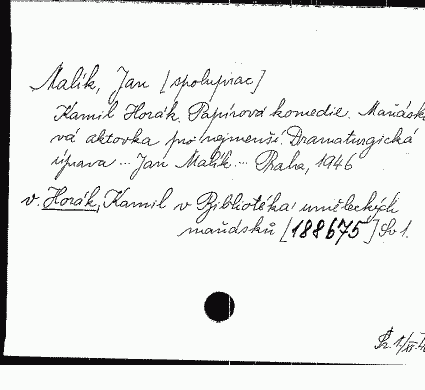 Malík, Jan [spoluprac]
Kamil Horák. Papírová komedie. Maňásko
vá aktovka pro nejmenší. Dramaturgická
úprava ... Jan Malík ... Praha, 1946
v. Horák, Kamil v Bibliotéka uměleckých
maňásků [188675] Sv 1.